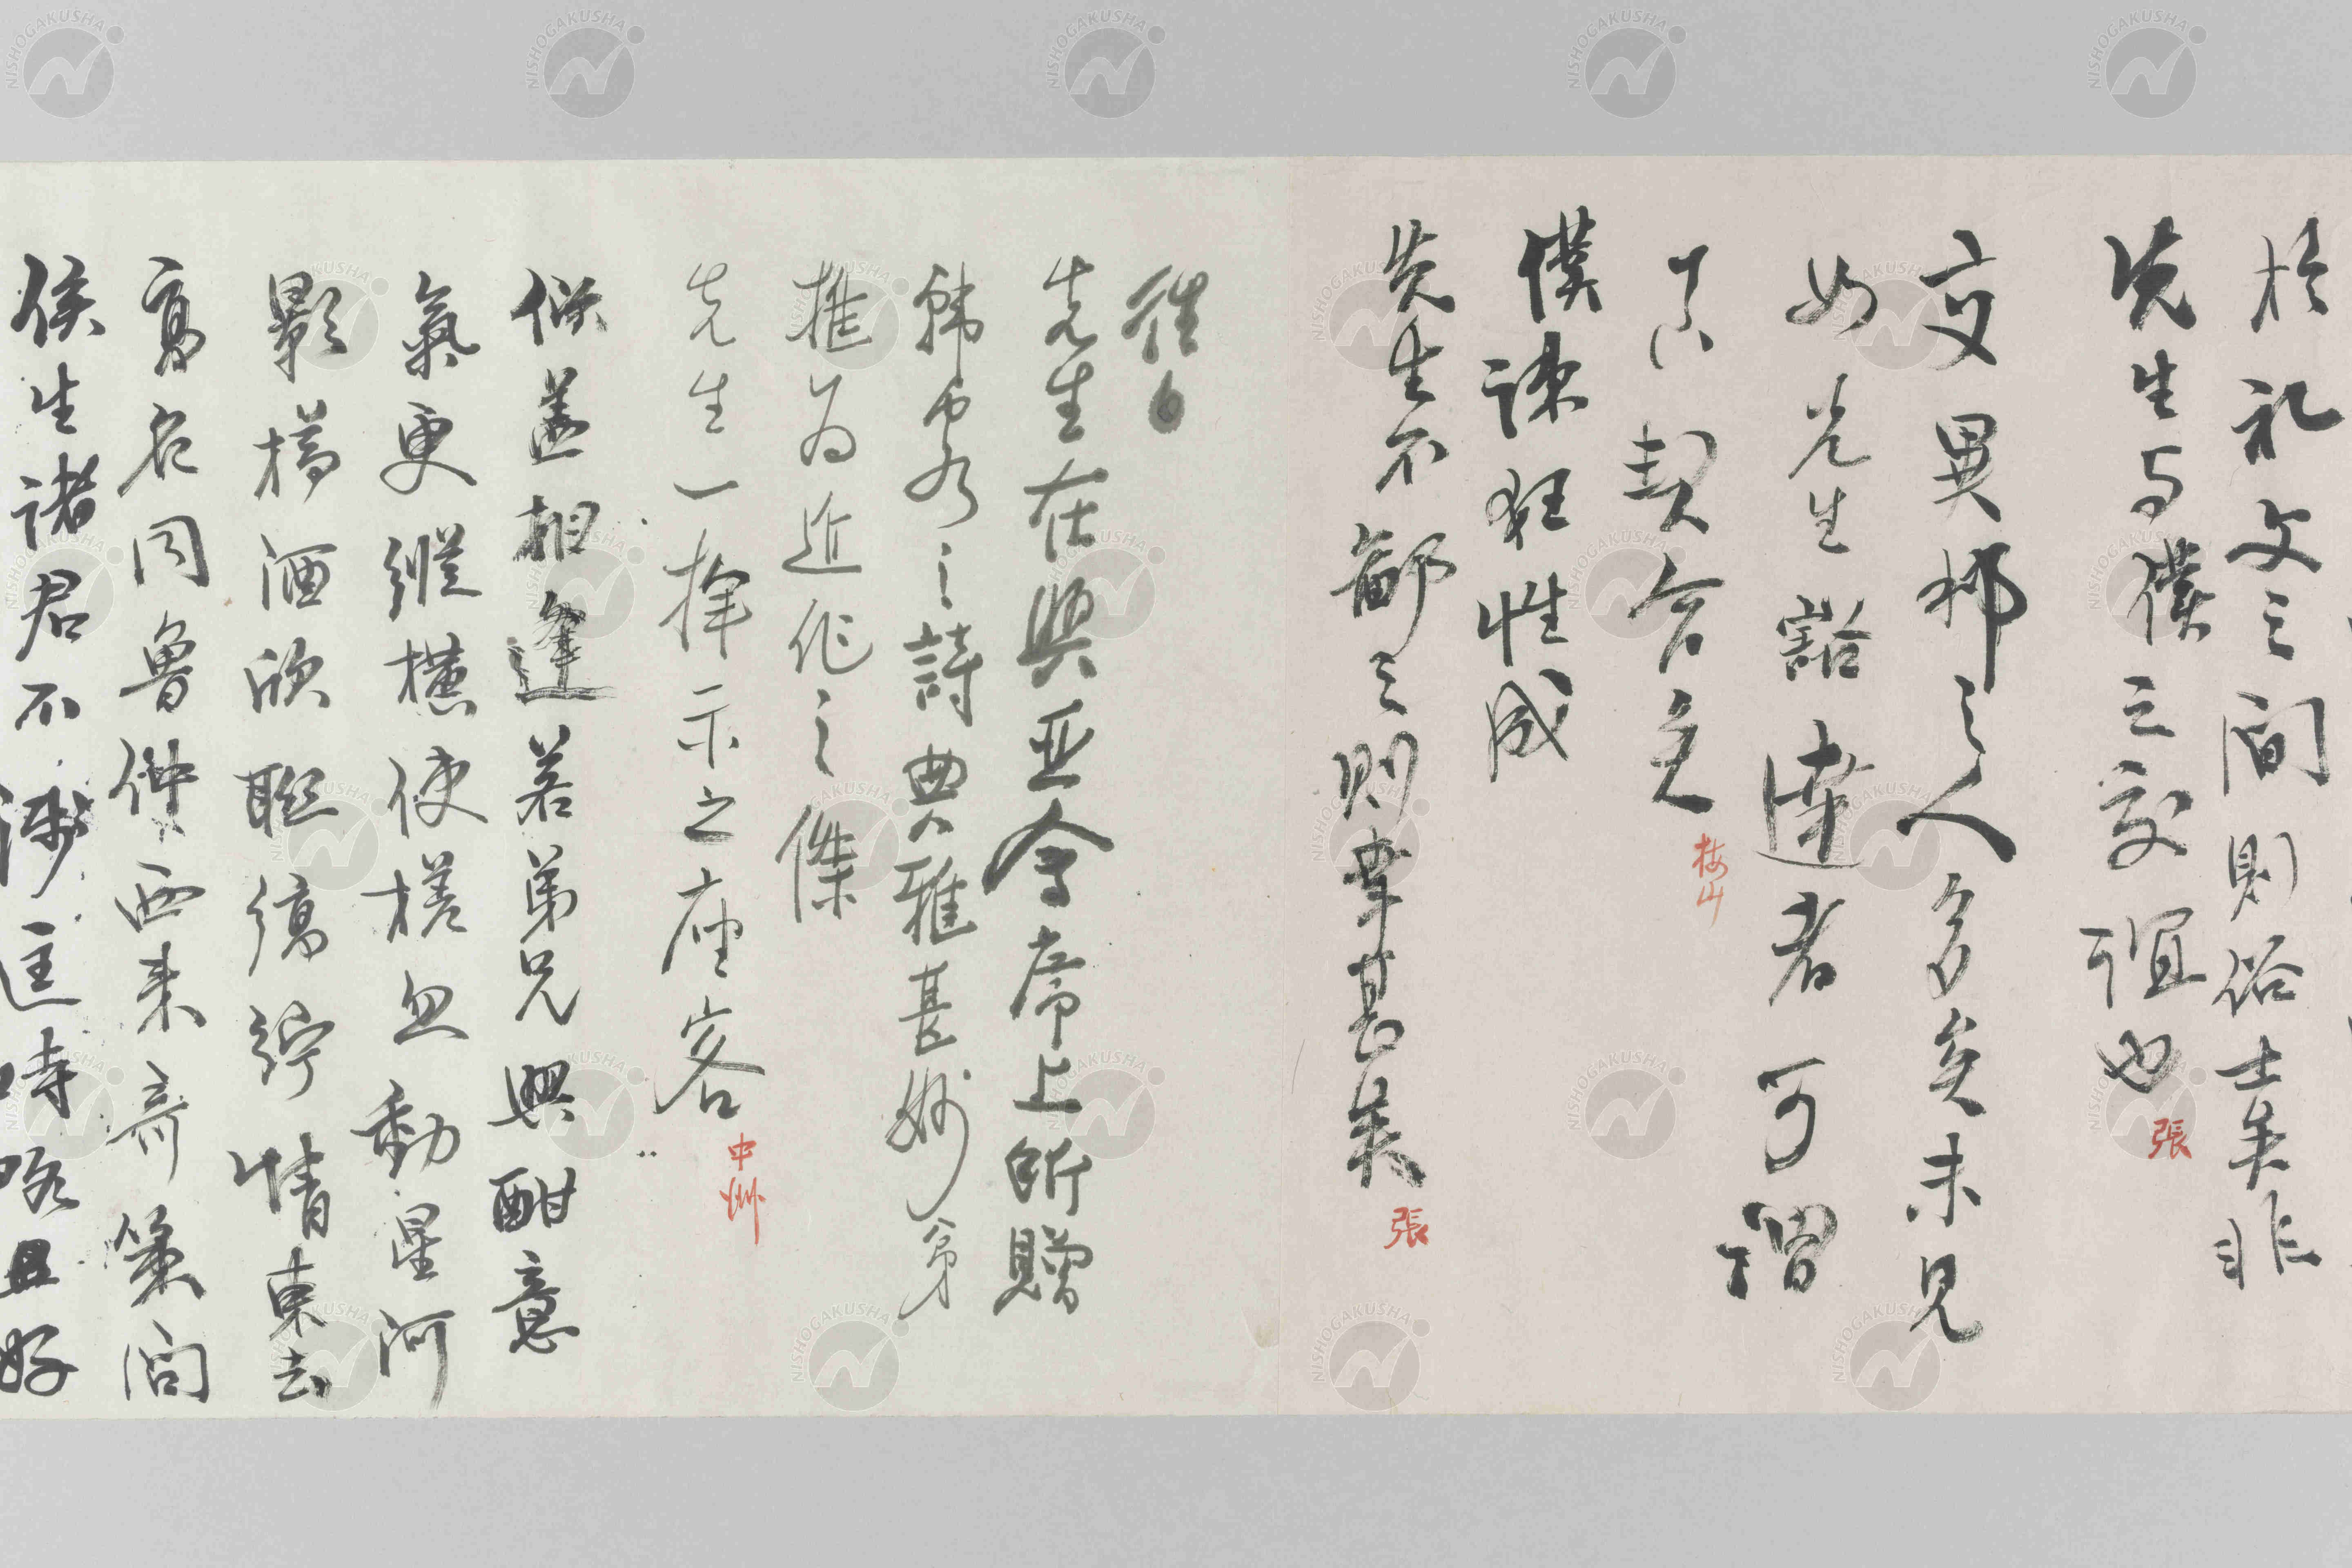 於礼文之間則俗士矣非
先生与僕之交誼也 張
交異邦之人多矣未見
如先生豁達者可謂
契合矣 梅山
僕疎狂性成
先生不鄙之則幸甚矣 張
往日
先生在興亞会席上所贈
韓客之詩典雅甚妙弟
推為近作之傑
先生一揮示之座客 中洲
傾蓋相逢若弟兄興酣意
氣更縱橫使槎忽動星河
影樽酒欣聯縞紵情東去
高名同魯仲西来奇策問
侯生諸君不涉匡時略且好
NISHOGAKUSHA